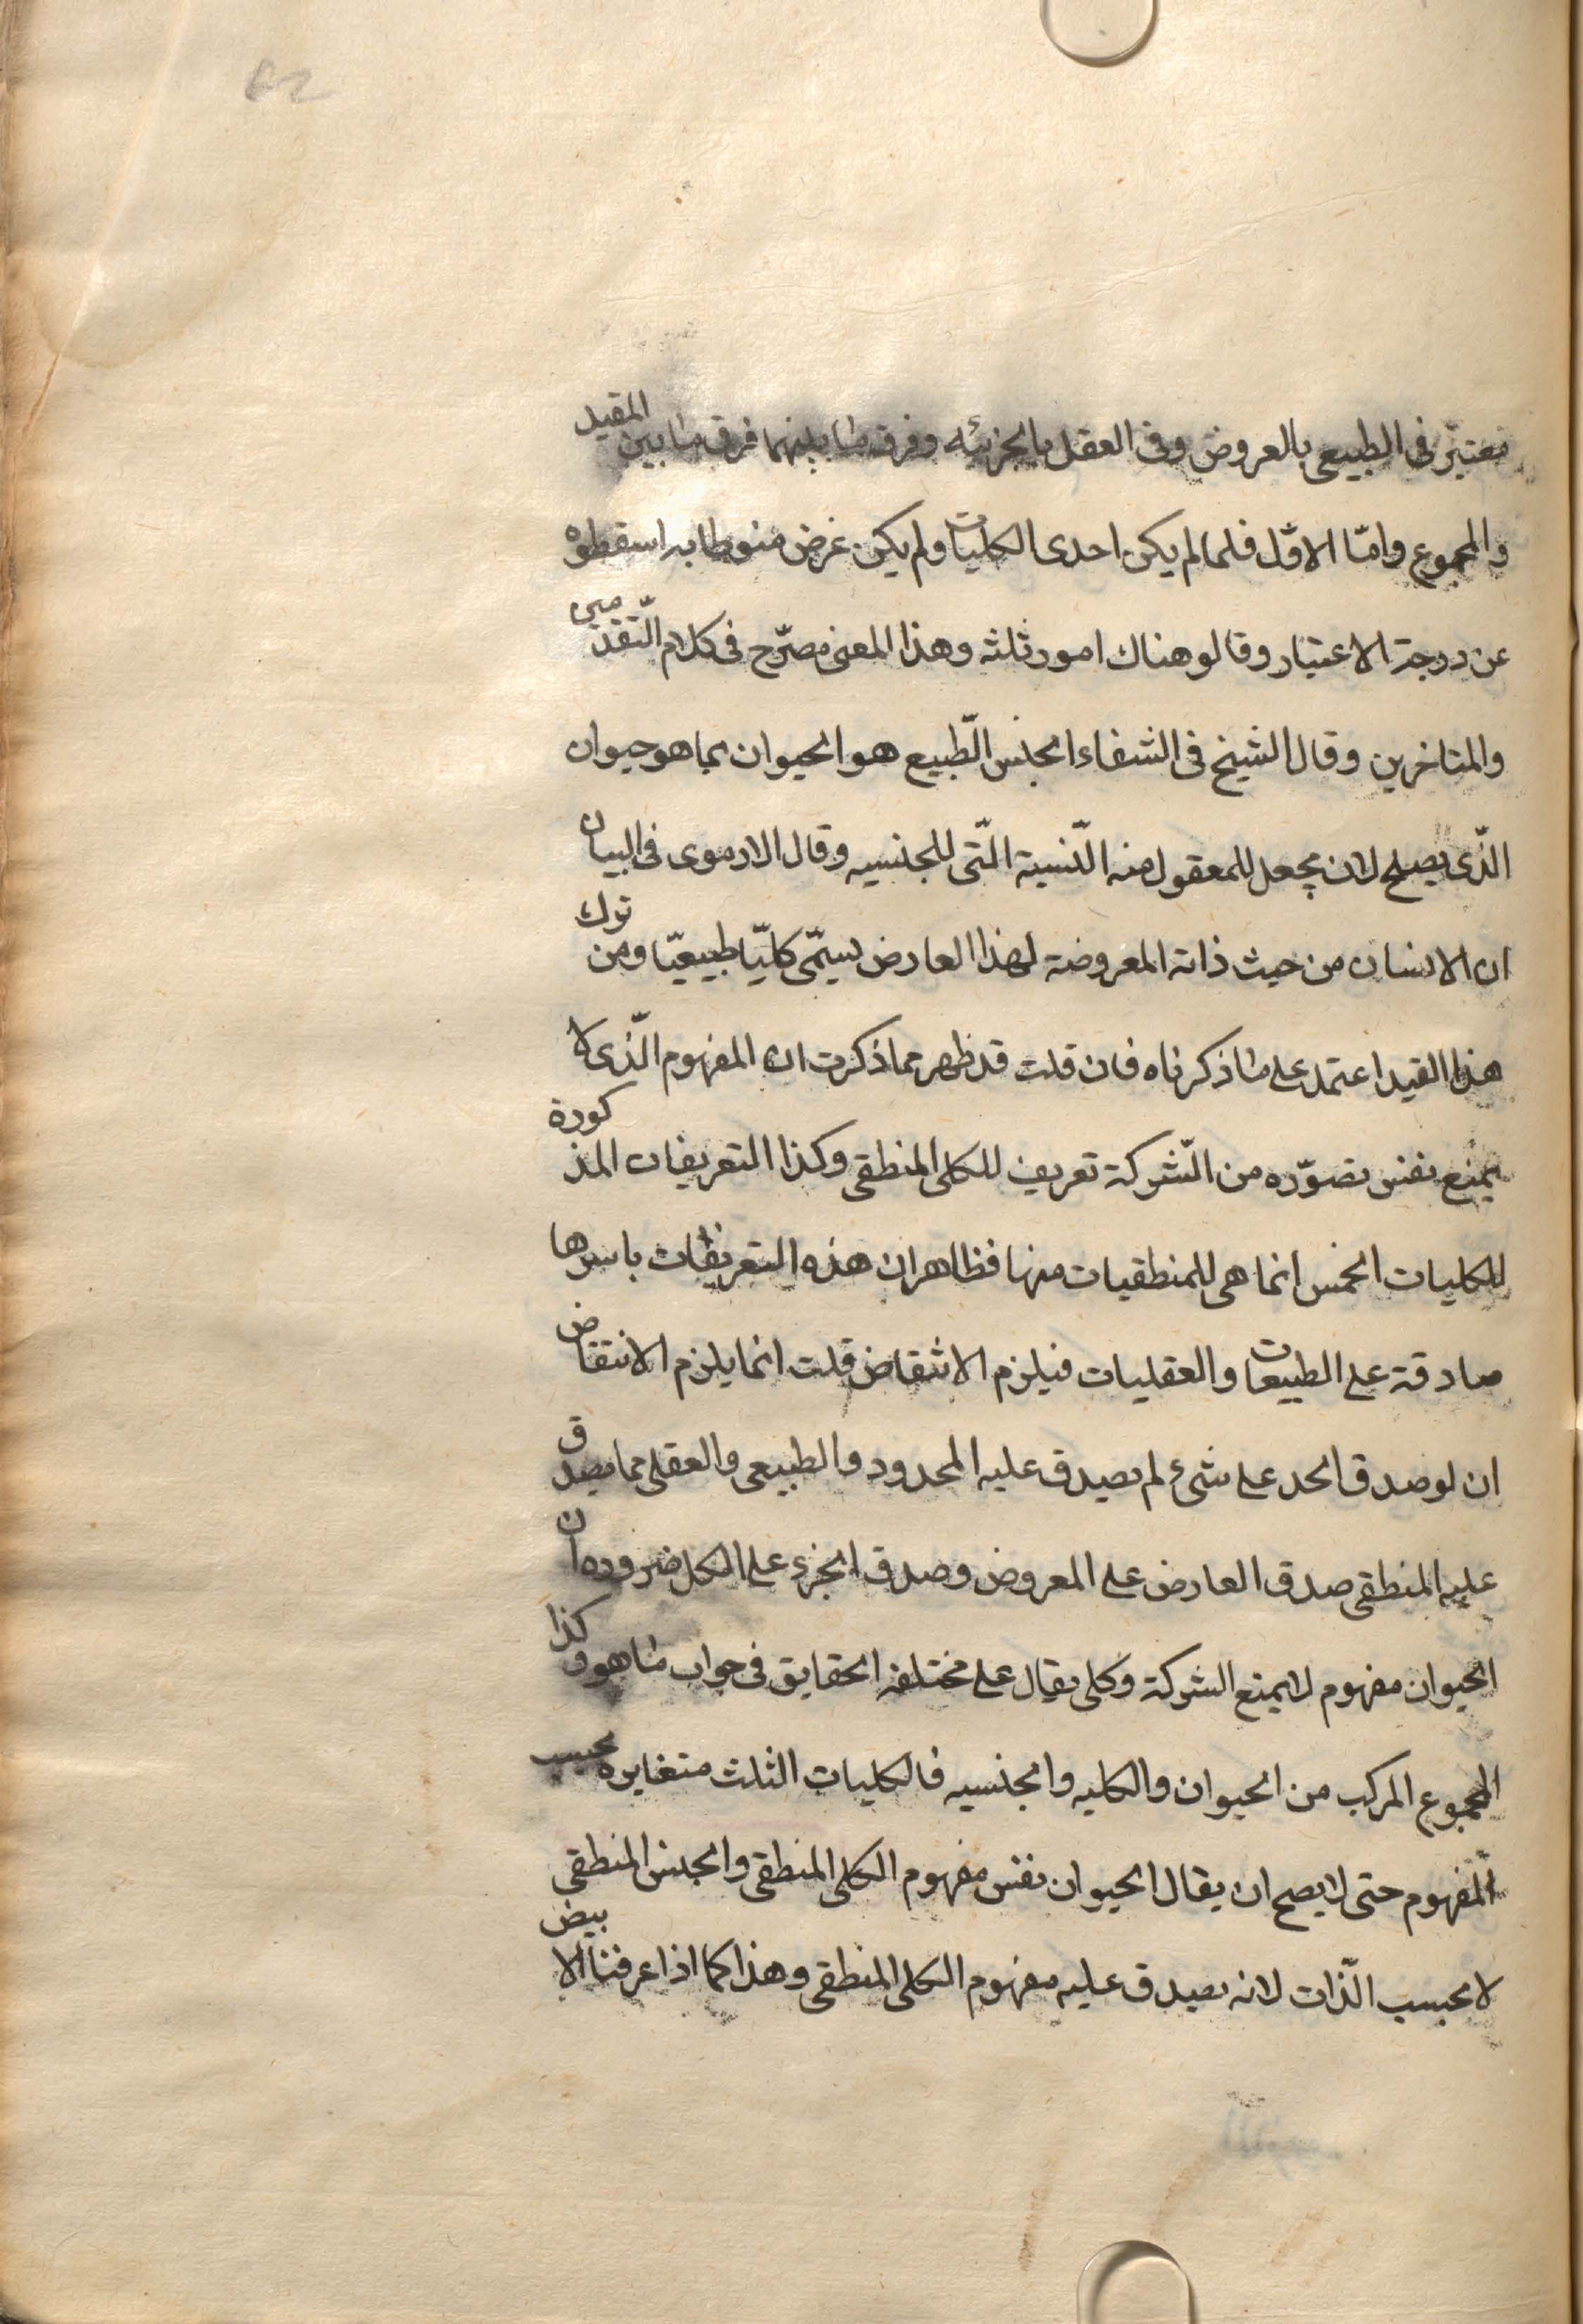 معتبر فى الطبيعى بالعروض وفى العقل بالجزئيه وفرق ما بينهما فرق ما بين المقيد
والمجموع وامّا الاوّل فلما لم يكن احدى الكليات ولم يكن غرض منوطا به اسقطوه
عن درجة الاعتبار وقالو هناك امور ثلثه وهذا المعنى مصرّح فى كلام المتقدّمين
والمتاخرين وقال الشيخ فى الشفاء الجنس الطّبيع هو الحيوان بما هو حيوان
الّذى يصلح لان يجعل للمعقول منه النّسبة الّتى للجنسيه وقال الارموى فى البيان
ان الانسان من حيث ذاته المعروضة لهذا العارض يسمّى كليّا طبيعيّا ومن ترك
هذا القيد اعتمد على ما ذكرناه فان قلت قد ظهر مما ذكرت ان المفهوم الّذى لا
يمنع نفس تصوّره من الشّركة تعريف للكلى المنطقى وكذا التعريفات المذكورة
للكليات الخمس انما هى للمنطقيات منها فظاهر ان هذه التعريفات باسرها
صادقة على الطبيعات والعقليات فيلزم الانتقاض قلت انما يلزم الانتقاض
ان لو صدق الحد على شىء لم يصدق عليه المحدود والطبيعى والعقلى مما يصدق
عليه المنطقى صدق العارض على المعروض وصدق الجزء على الكل ضروره ان
الحيوان مفهوم لا يمنع الشركة وكلى يقال على مختلفه الحقايق فى جواب ما هو وكذا
المجموع المركب من الحيوان والكليه والجنسيه فالكليات الثلث متغايره بحسب
المفهوم حتى لا يصح ان يقال الحيوان نفس مفهوم الكلى المنطقى والجنس المنطقى
لا بحسب الّذات لانه يصدق عليه مفهوم الكلى المنطقى وهذا كما اذا عرفنا الابيض